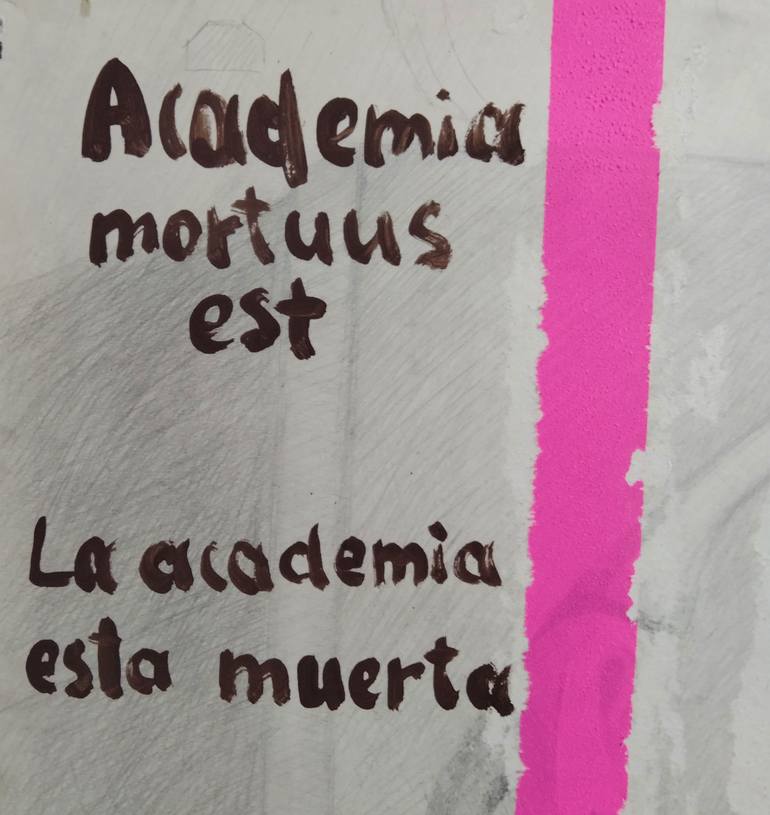 Academia
mortuus
est
La academia
esta muerta